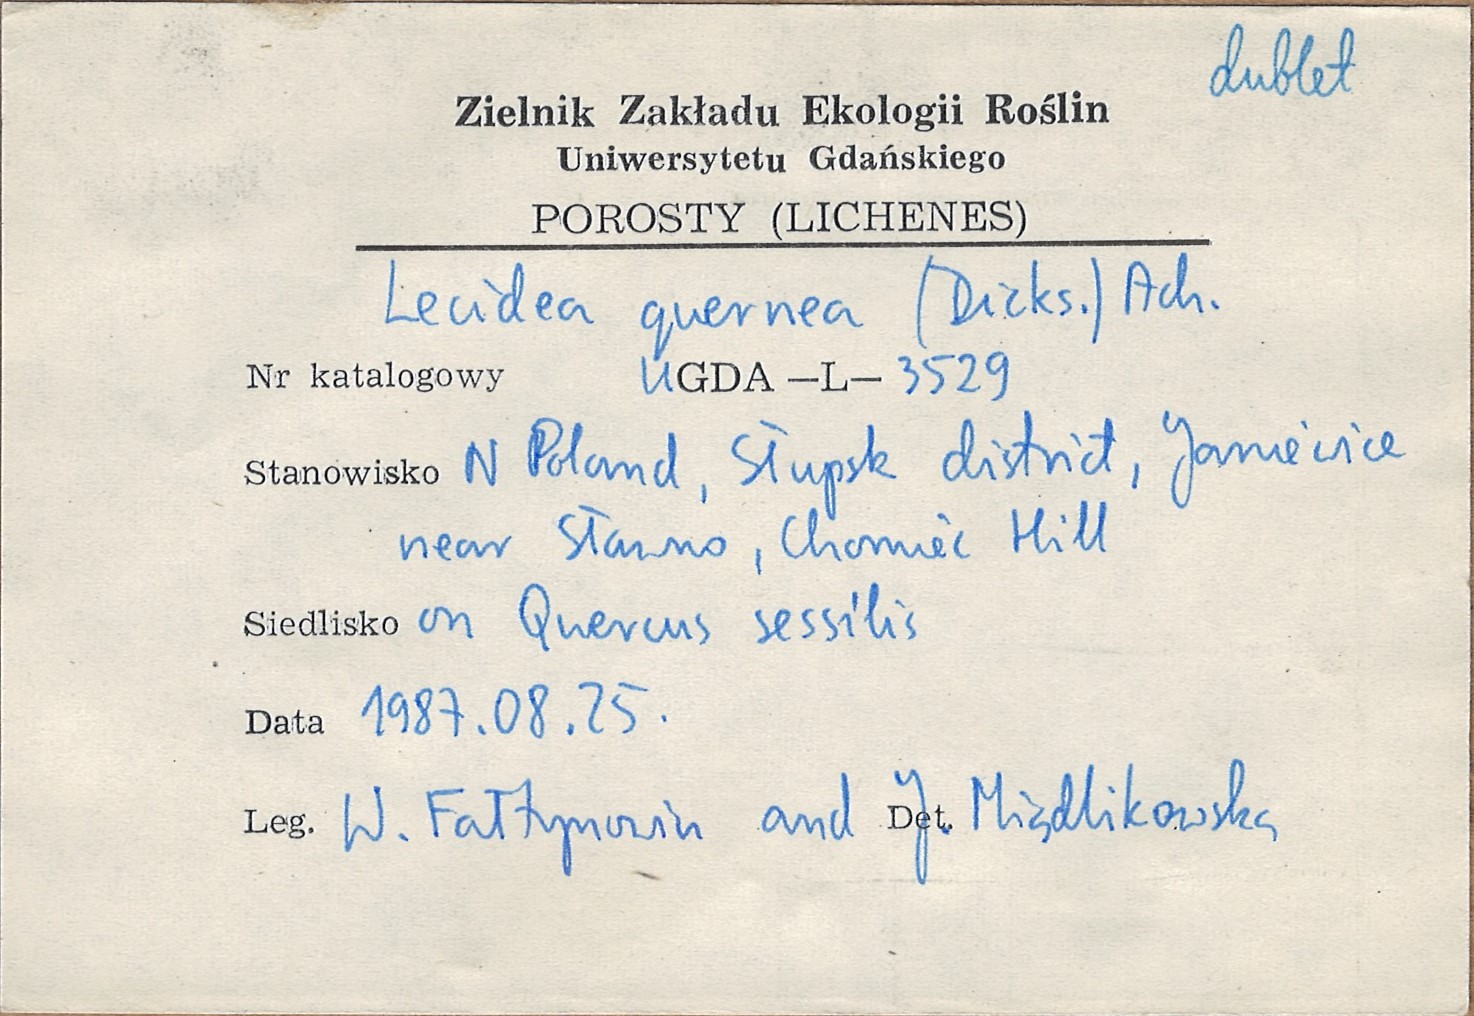 dublet
Zielnik Zakładu Ekologii Roślin
Uniwersytetu Gdańskiego
POROSTY (LICHENES)
Lecidea quernea (Dicks.) Ach.
Nr katalogowy UGDA —L— 3529
Stanowisko N Poland, Słupsk district, Janiewice
near Sławno, Chomiec Hill
Siedlisko on Quercus sessilis
Data 1987.08.25.
Leg. W. Fałtynowicz and Det. J. Miądlikowska